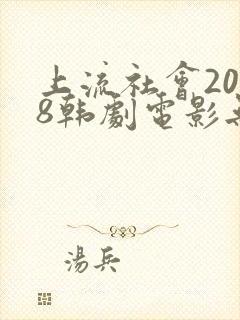 上流社會20
8韩劇電影
湯兵